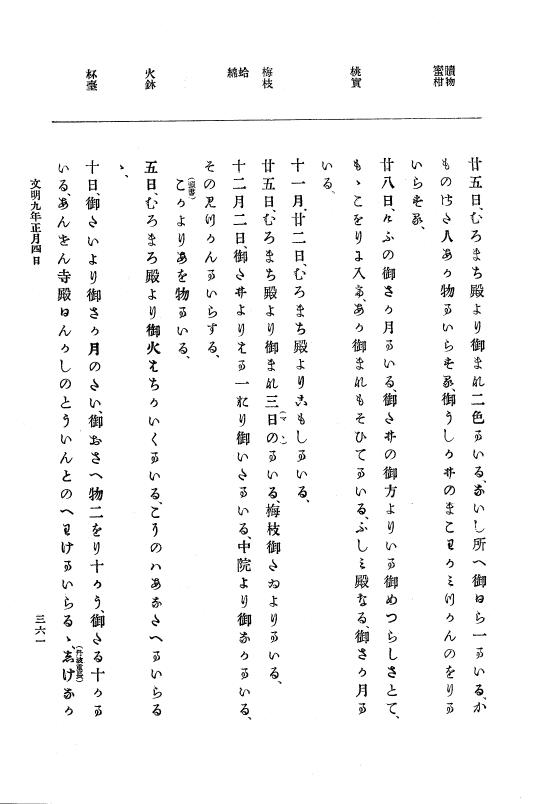 贖物
蜜柑
桃實
梅枝
蛤
綿
火鉢
杯臺
廿五日、むろまち殿より御まな二色まいる、ないし所へ御はら一まいる、か
ものはさ人あか物まいらせ候、御うしろ井のまこみかんのをりま
いらせ候、
廿八日、けふの御さか月まいる、御さ井の御方よりいま御めつらしさとて、
もゝこをりに入候、あか御まなもそひてまいる、ふしみ殿なる、御さか月ま
いる、
十一月廿二日、むろまち殿よりこもしまいる、
廿五日、むろまち殿より御まな三日のまいる、梅枝御さゐよりまいる、
十二月二日、御さ井よりはま一折り御いたまいる、中院より御わたまいる、
そのみかんまいらする、
(頭書)
こかよりあを物まいる、
五日、むろまち殿より御火はちのいくまいる、こうのハあなたへまいらる
ゝ、
十日、御さいより御さか月のたい、御おさへ物二をり十かう、御たる十かま
いる、あんせん寺殿はんかしのとういんとのへわけまいらるゝ、しけなか
(丹波重長)
文明九年正月四日
三六一